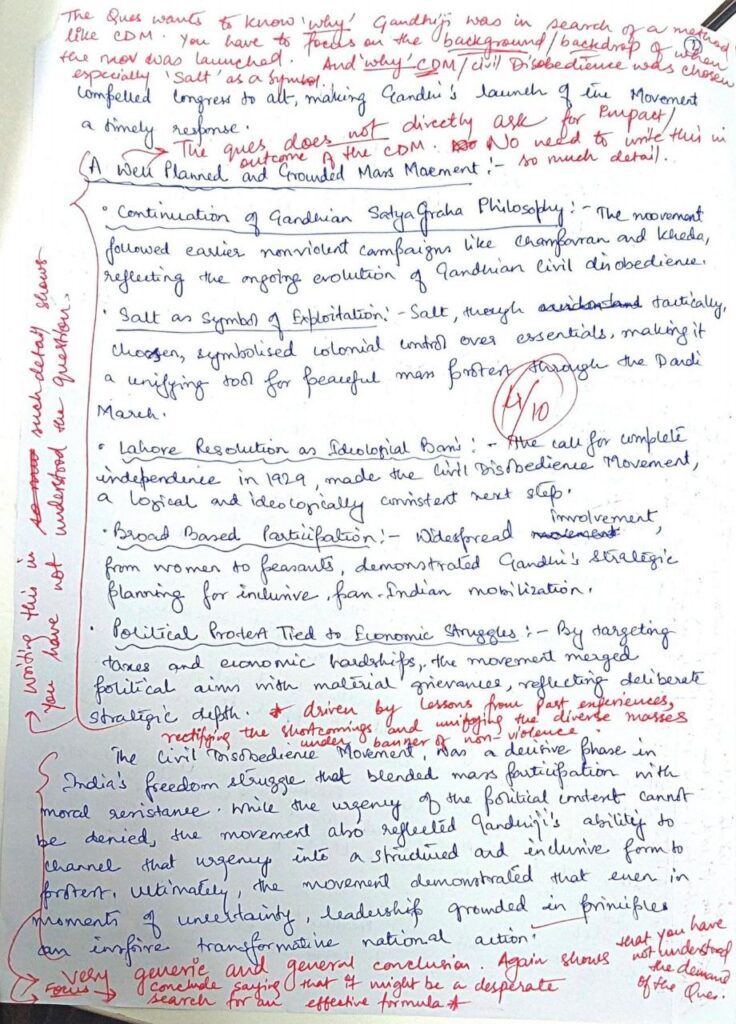 The Ques wants to know 'why' Gandhiji was in search of a method
like CDM. You have to focus on the background/backdrop of when
the mov was launched. And 'why' CDM/civil Disobedience was chosen
especially 'Salt' as a symbol.
compelled Congress to act, making Gandhi's launch of the Movement
a timely response.
The ques does not directly ask for Impact/
outcome of the CDM. No need to write this in
so much detail.
A Well Planned and Grounded Mass Maement :-
• Continuation of Gandhian SatyaGraha Philosophy :- The moovement
followed earlier nonviolent campaigns like Champaran and Kheda,
reflecting the ongoing evolution of Gandhian Civil disobedience.
• Salt as Symbol of Exploitation :- Salt, though tactically,
choosen, symbolised colonial control over essentials, making it
a unifying tool for peaceful mass protest through the Dandi
March.
4/10
• Lahore Resolution as Ideological Basis :- The call for complete
independence in 1929, made the Civil Disobedience Movement,
a logical and ideologically consistent next step.
• Broad Based Participation :- Widespread involvement,
from women to peasants, demonstrated Gandhi's strategic
planning for inclusive, pan-Indian mobilization.
• Political Protest Tied to Economic Struggles :- By targeting
taxes and economic hardships, the movement merged
political aims with material grievances, reflecting deliberate
strategic depth. * driven by lessons from past experiences,
rectifying the shortcomings and unifying the diverse masses
under banner of non-violence.
Writing this in such detail shows
You have not understood the question.
The Civil Disobedience Movement, was a decisive phase in
India's freedom struggle that blended mass participation with
moral resistance. While the urgency of the political context cannot
be denied, the movement also reflected Gandhiji's ability to
channel that urgency into a structured and inclusive form to
protest. Ultimately, the movement demonstrated that even in
moments of uncertainty, leadership grounded in principles
can inspire transformative national action.
Very generic and general conclusion. Again shows that you have
not understood
the demand
of the Ques.
Focus → conclude saying that it might be a desperate
search for an effective formula *